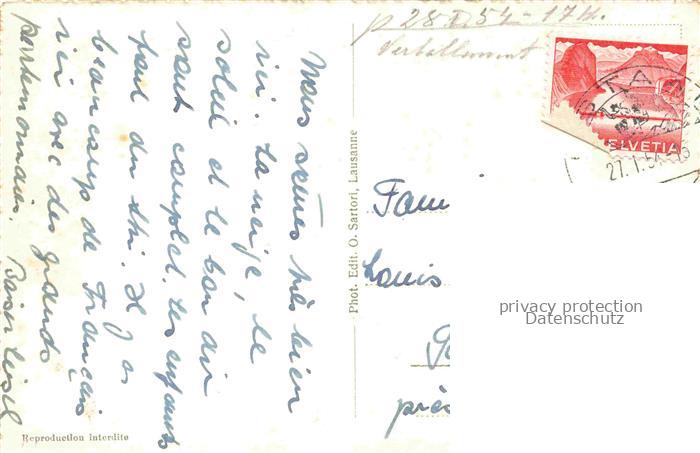 Nous sommes très bien
ici. La neige, le
soleil et le bon air
sont complet. Les enfants
font du ski. Il y a
beaucoup de Français
ici avec des grands
Reproduction interdite
Phot. Edit. O. Sartori, Lausanne
p 28 I 54 - 17 H.
HELVETIA
27.1.54
Fam
Louis
près
privacy protection
Datenschutz